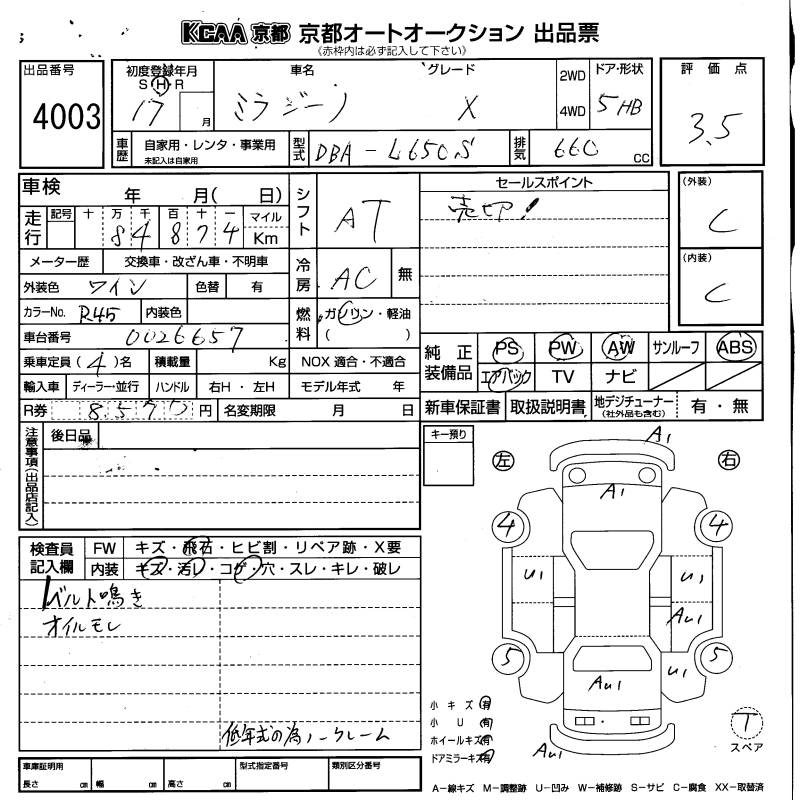 KCAA 京都 京都オートオークション 出品票
(赤枠内は必ず記入して下さい)
出品番号
4003
初度登録年月
S H R
17 月
車名
ミラジーノ
グレード
X
2WD
4WD
ドア・形状
5 HB
評価点
3.5
車歴
自家用・レンタ・事業用
未記入は自家用
型式
DBA-L650S
排気
660 cc
車検 年 月( 日)
走行
記号 十 万 千 百 十 一 マイル
8 4 8 7 4 Km
メーター歴 交換車・改ざん車・不明車
外装色 ワイン 色替 有
カラーNo. R45 内装色
車台番号 0026657
乗車定員 (4)名 積載量 Kg
輸入車 ディーラー・並行 ハンドル 右H・左H
R券 8570 円 名変期限 月 日
シフト
AT
冷房
AC 無
燃料
ガソリン・軽油
( )
NOX 適合・不適合
モデル年式 年
セールスポイント
売切!
(外装)
C
(内装)
C
純正装備品
PS PW AW サンルーフ ABS
エアバック TV ナビ
新車保証書 取扱説明書 地デジチューナー
(社外品も含む) 有・無
注意事項(出品店記入)
後日品
キー預り
検査員記入欄
FW キズ・飛石・ヒビ割・リペア跡・X要
内装 キズ・汚レ・コゲ・穴・スレ・キレ・破レ
ベルト鳴き
オイルモレ
低年式の為ノークレーム
左
右
A1
A1
4
4
U1
U1
AU1
5
5
U1
AU1
AU1
小キズ 有
小U 有
ホイールキズ 有
ドアミラーキズ 有
T
スペア
車庫証明用
長さ cm 幅 cm 高さ cm
型式指定番号
類別区分番号
A-線キズ M-調整跡 U-凹み W-補修跡 S-サビ C-腐食 XX-取替済